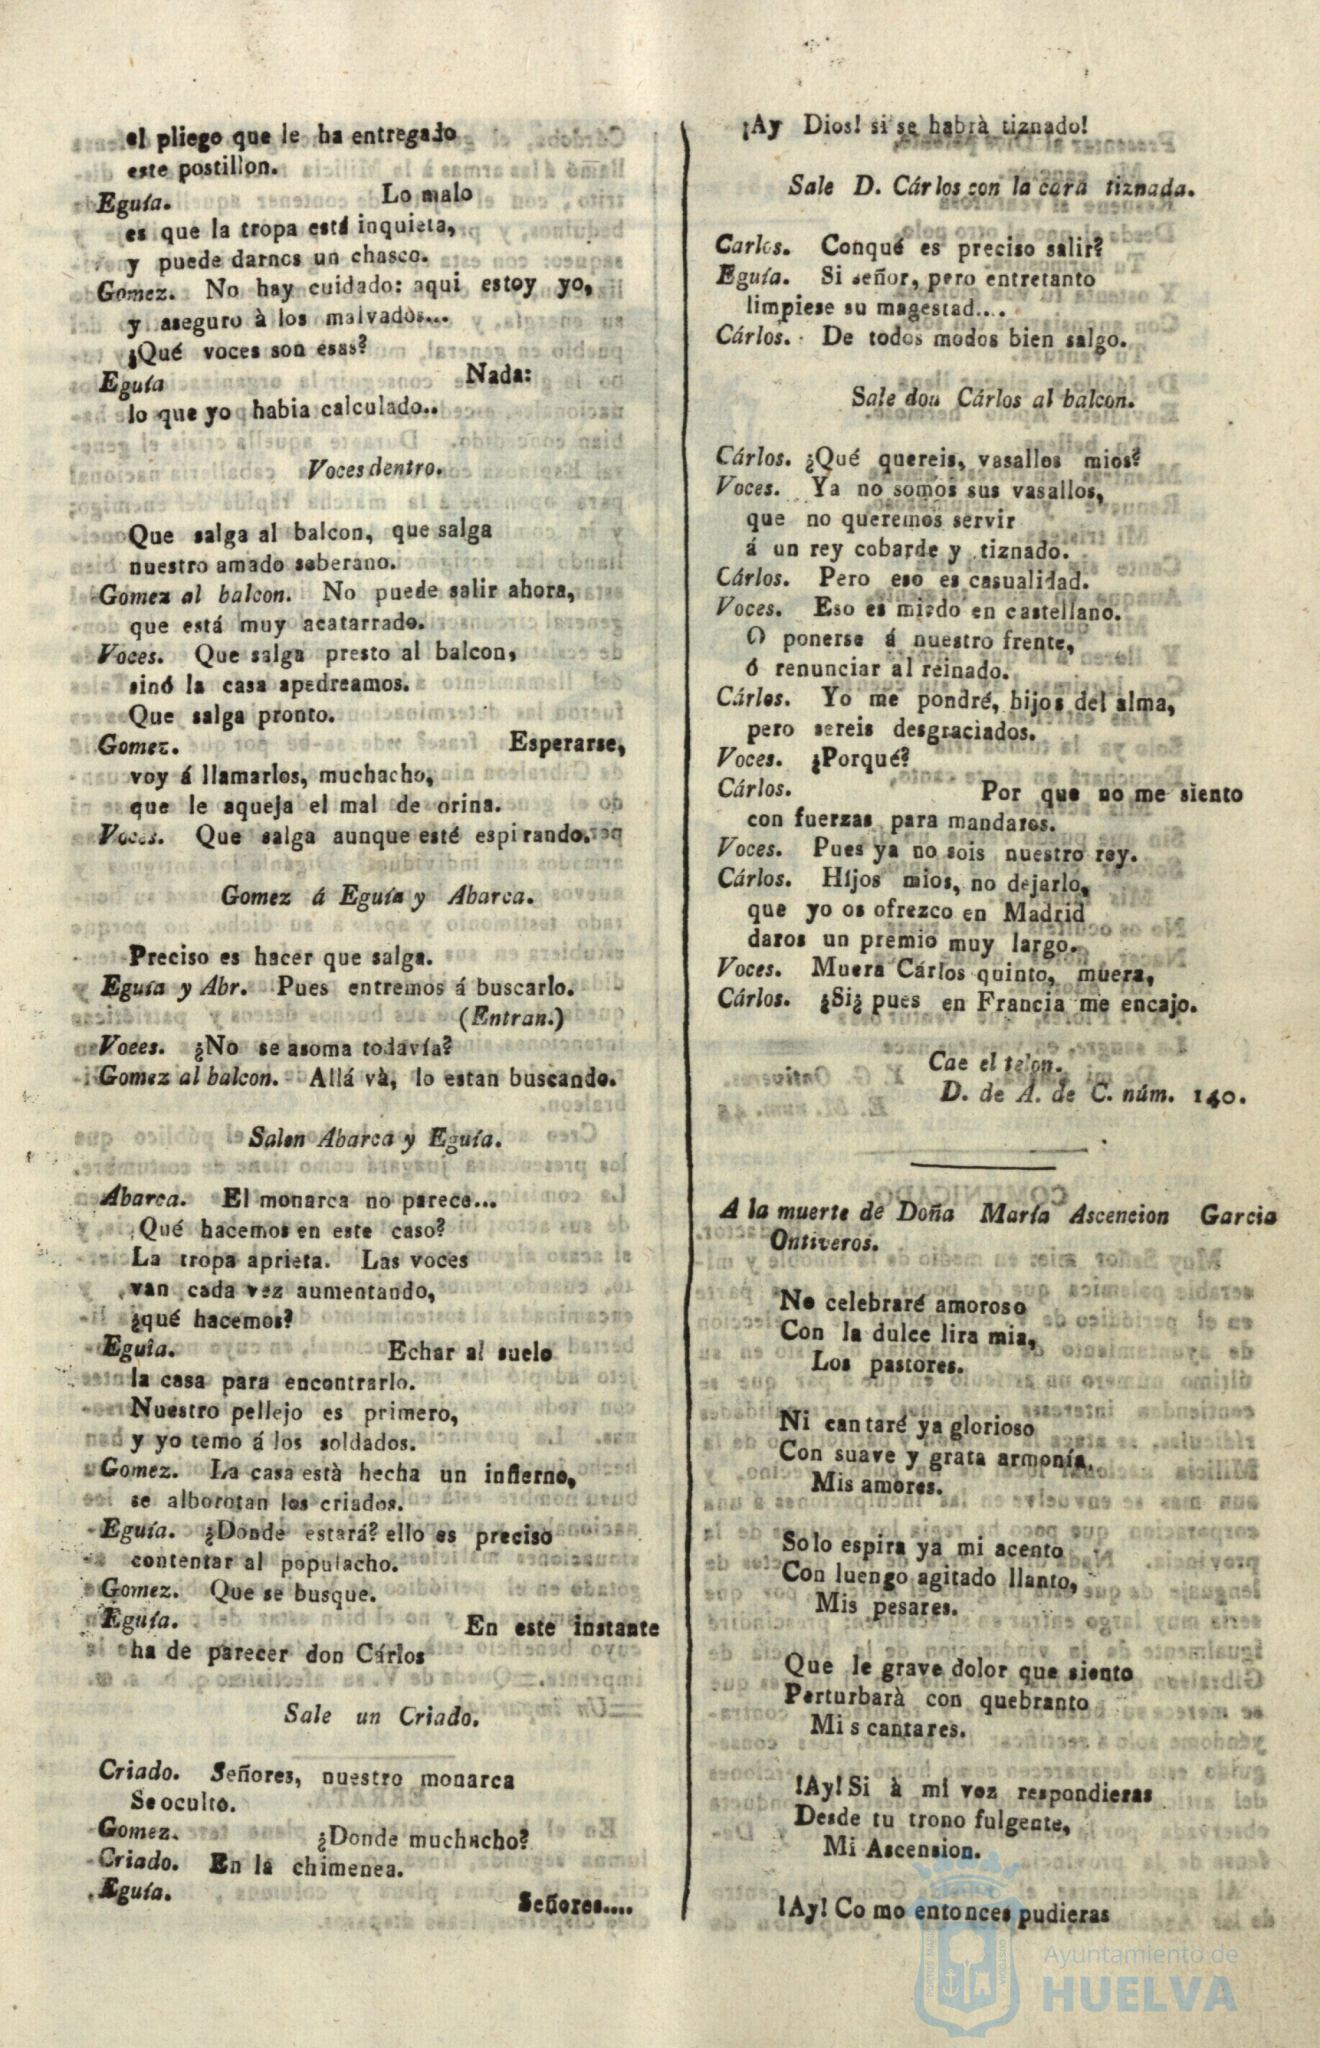 el pliego que le ha entregado
este postillon.
Eguía. Lo malo
es que la tropa está inquieta,
y puede darnos un chasco.
Gomez. No hay cuidado: aqui estoy yo,
y aseguro à los malvados...
¿Qué voces son esas?
Eguía Nada:
lo que yo habia calculado..
Voces dentro.
Que salga al balcon, que salga
nuestro amado soberano.
Gomez al balcon. No puede salir ahora,
que está muy acatarrado.
Voces. Que salga presto al balcon,
sinó la casa apedreamos.
Que salga pronto.
Gomez. Esperarse,
voy á llamarlos, muchacho,
que le aqueja el mal de orina.
Voces. Que salga aunque esté espirando.
Gomez á Eguía y Abarca.
Preciso es hacer que salga.
Eguía y Abr. Pues entremos á buscarlo.
(Entran.)
Voees. ¿No se asoma todavía?
Gomez al balcon. Allá và, lo estan buscando.
Salen Abarca y Eguía.
Abarca. El monarca no parece...
¿Qué hacemos en este caso?
La tropa aprieta. Las voces
van cada vez aumentando,
¿qué hacemos?
Eguia. Echar al suelo
la casa para encontrarlo.
Nuestro pellejo es primero,
y yo temo á los soldados.
Gomez. La casa està hecha un infierno,
se alborotan los criados.
Eguía. ¿Donde estará? ello es preciso
contentar al populacho.
Gomez. Que se busque.
Eguía. En este instante
ha de parecer don Cárlos
Sale un Criado.
Criado. Señores, nuestro monarca
Se oculto.
Gomez. ¿Donde muchacho?
Criado. En la chimenea.
Eguía. Señores....
¡Ay Dios! si se habrà tiznado!
Sale D. Cárlos con la cara tiznada.
Carlos. Conqué es preciso salir?
Eguía. Si señor, pero entretanto
limpiese su magestad....
Cárlos. De todos modos bien salgo.
Sale don Cárlos al balcon.
Cárlos. ¿Qué quereis, vasallos mios?
Voces. Ya no somos sus vasallos,
que no queremos servir
á un rey cobarde y tiznado.
Cárlos. Pero eso es casualidad.
Voces. Eso es miedo en castellano.
O ponerse á nuestro frente,
ó renunciar al reinado.
Cárlos. Yo me pondré, hijos del alma,
pero sereis desgraciados.
Voces. ¿Porqué?
Cárlos. Por que no me siento
con fuerzas para mandaros.
Voces. Pues ya no sois nuestro rey.
Cárlos. Hijos mios, no dejarlo,
que yo os ofrezco en Madrid
daros un premio muy largo.
Voces. Muera Cárlos quinto, muera,
Cárlos. ¿Si¿ pues en Francia me encajo.
Cae el telon.
D. de A. de C. núm. 140.
A la muerte de Doña María Ascencion Garcia
Ontiveros.
No celebraré amoroso
Con la dulce lira mia,
Los pastores.
Ni cantaré ya glorioso
Con suave y grata armonía,
Mis amores.
Solo espira ya mi acento
Con luengo agitado llanto,
Mis pesares.
Que le grave dolor que siento
Perturbarà con quebranto
Mis cantares.
!Ay! Si à mi voz respondieras
Desde tu trono fulgente,
Mi Ascension.
!Ay! Como entonces pudieras
Ayuntamiento de
HUELVA